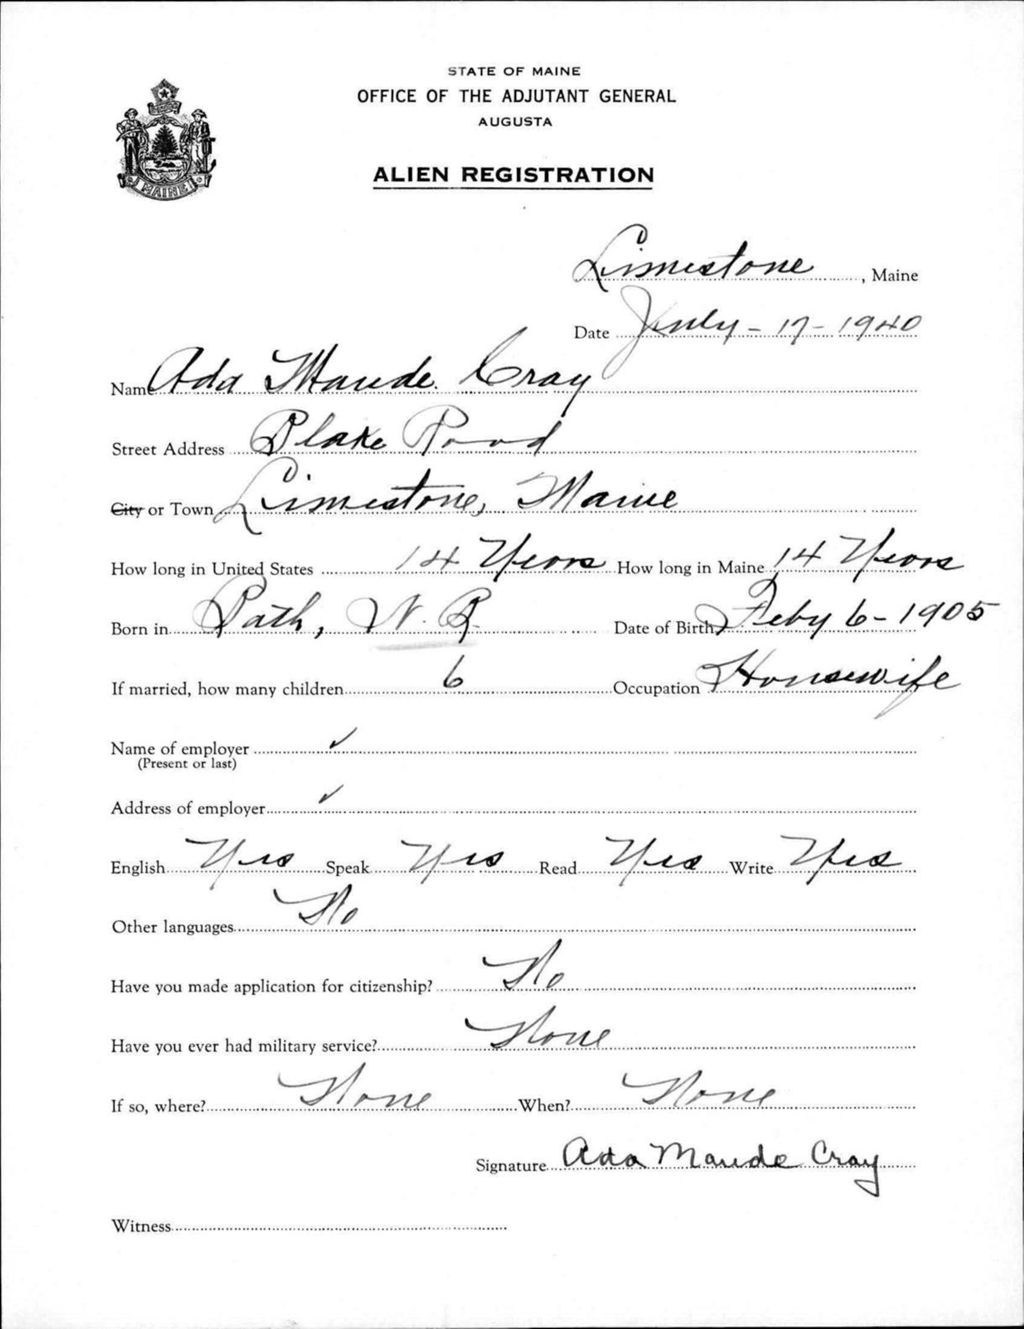 STATE OF MAINE
OFFICE OF THE ADJUTANT GENERAL
AUGUSTA
MAINE
ALIEN REGISTRATION
Limestone, Maine
Date July - 17 - 1940
Name Ada Maude. Cray
Street Address Blake Road
City or Town Limestone, Maine
How long in United States 14 Years How long in Maine 14 Years
Born in Bath, N. B. Date of Birth Feby 6 - 1905
If married, how many children 6 Occupation Housewife
Name of employer ✓
(Present or last)
Address of employer ✓
English Yes Speak Yes Read Yes Write Yes
Other languages No
Have you made application for citizenship? No
Have you ever had military service? None
If so, where? None When? None
Signature Ada Maude Cray
Witness